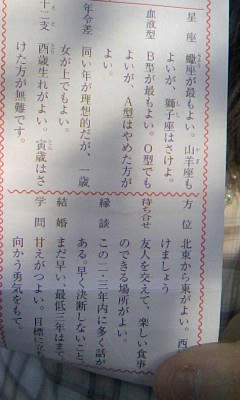 星座 蠍座が最もよい。山羊座も
よいが、獅子座はさけよ。
血液型 B型が最もよい。O型でも
よいが、A型はやめた方が
よい。
年令差 同い年が理想的だが、一歳
女が上でもよい。
十二支 酉歳生れがよい。寅歳はさ
けた方が無難です。
方位 北東から東がよい。西
けましょう
待ち合せ 友人を交えて、楽しい食事
のできる場所がよい。
縁談 この一・三年内に多く話が
ある。早く決断しないこと。
結婚 まだ早い、最低三年はま
学問 甘えがつよい。目標に
向かう勇気をもて。